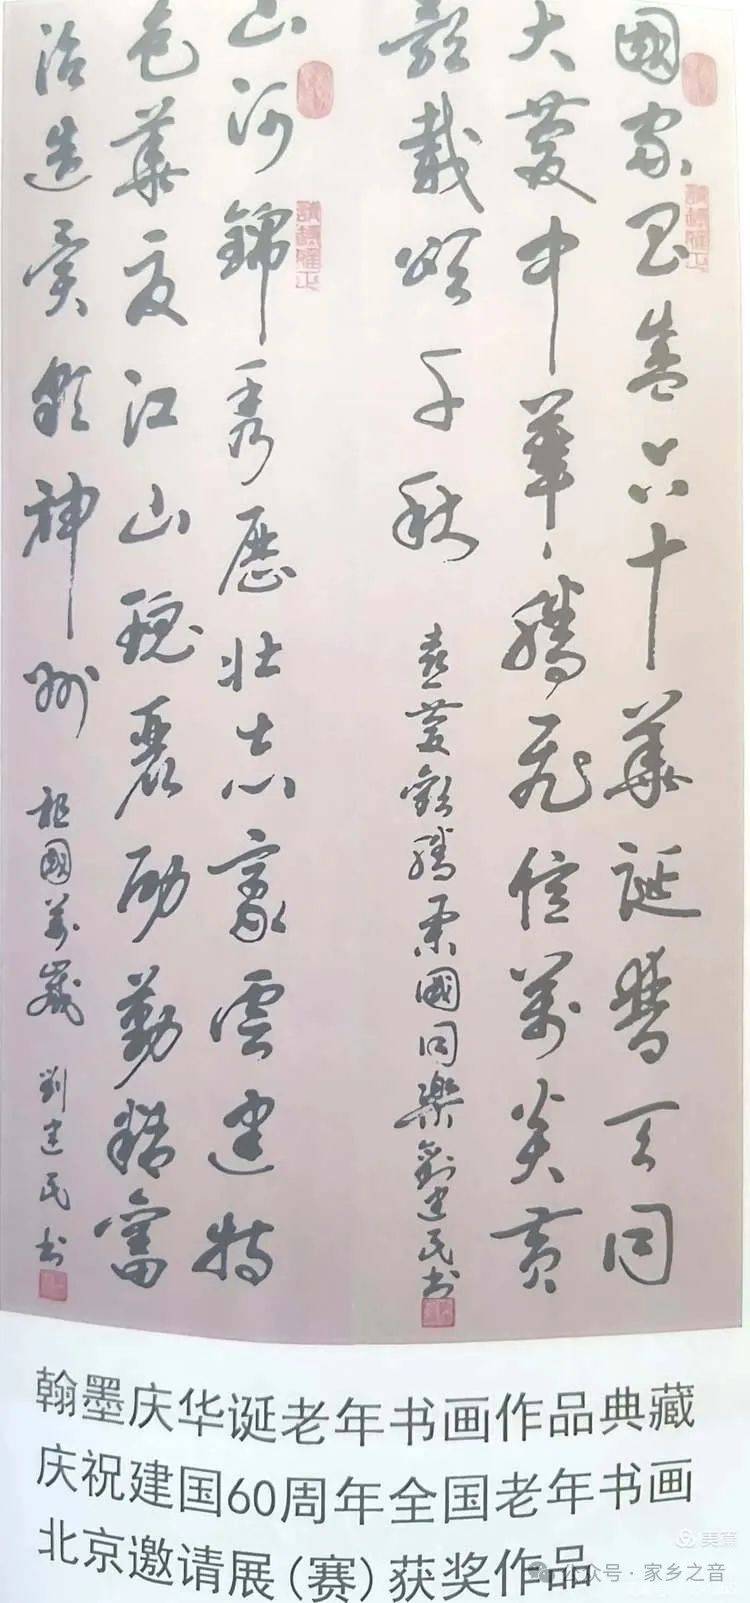 國家昌盛六十華誕普天同
大慶中華騰飛億萬炎黃
載頌千秋
喜慶歡騰國同樂劉建民书
山河錦秀壯志豪雲建特
色華夏江山麗勤精富
治造神州
祖國萬歲 劉建民书
翰墨庆华诞老年书画作品典藏
庆祝建国60周年全国老年书画
北京邀请展(赛)获奖作品
美篇
公众号·家乡之音